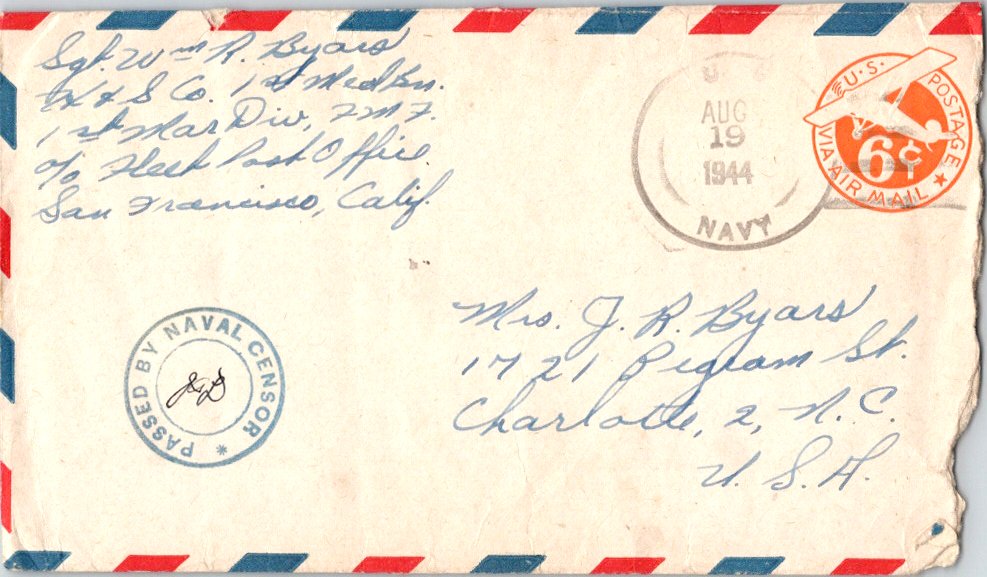 Sgt. Wm R. Byars
H & S Co. 1st Med Bn.
1st Mar Div, F.M.F.
c/o Fleet Post Office
San Francisco, Calif.
U. S.
AUG
19
1944
NAVY
U.S. POSTAGE
6¢
VIA AIR MAIL
PASSED BY NAVAL CENSOR
Mrs. J. R. Byars
1721 Pegram St.
Charlotte, 2, N. C.
U. S. A.